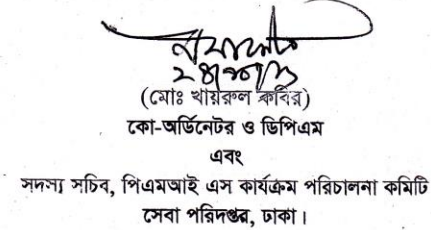 (মোঃ খায়রুল কবির)
কো-অর্ডিনেটর ও ডিপিএম
এবং
সদস্য সচিব, পিএমআই এস কার্যক্রম পরিচালনা কমিটি
সেবা পরিদপ্তর, ঢাকা।